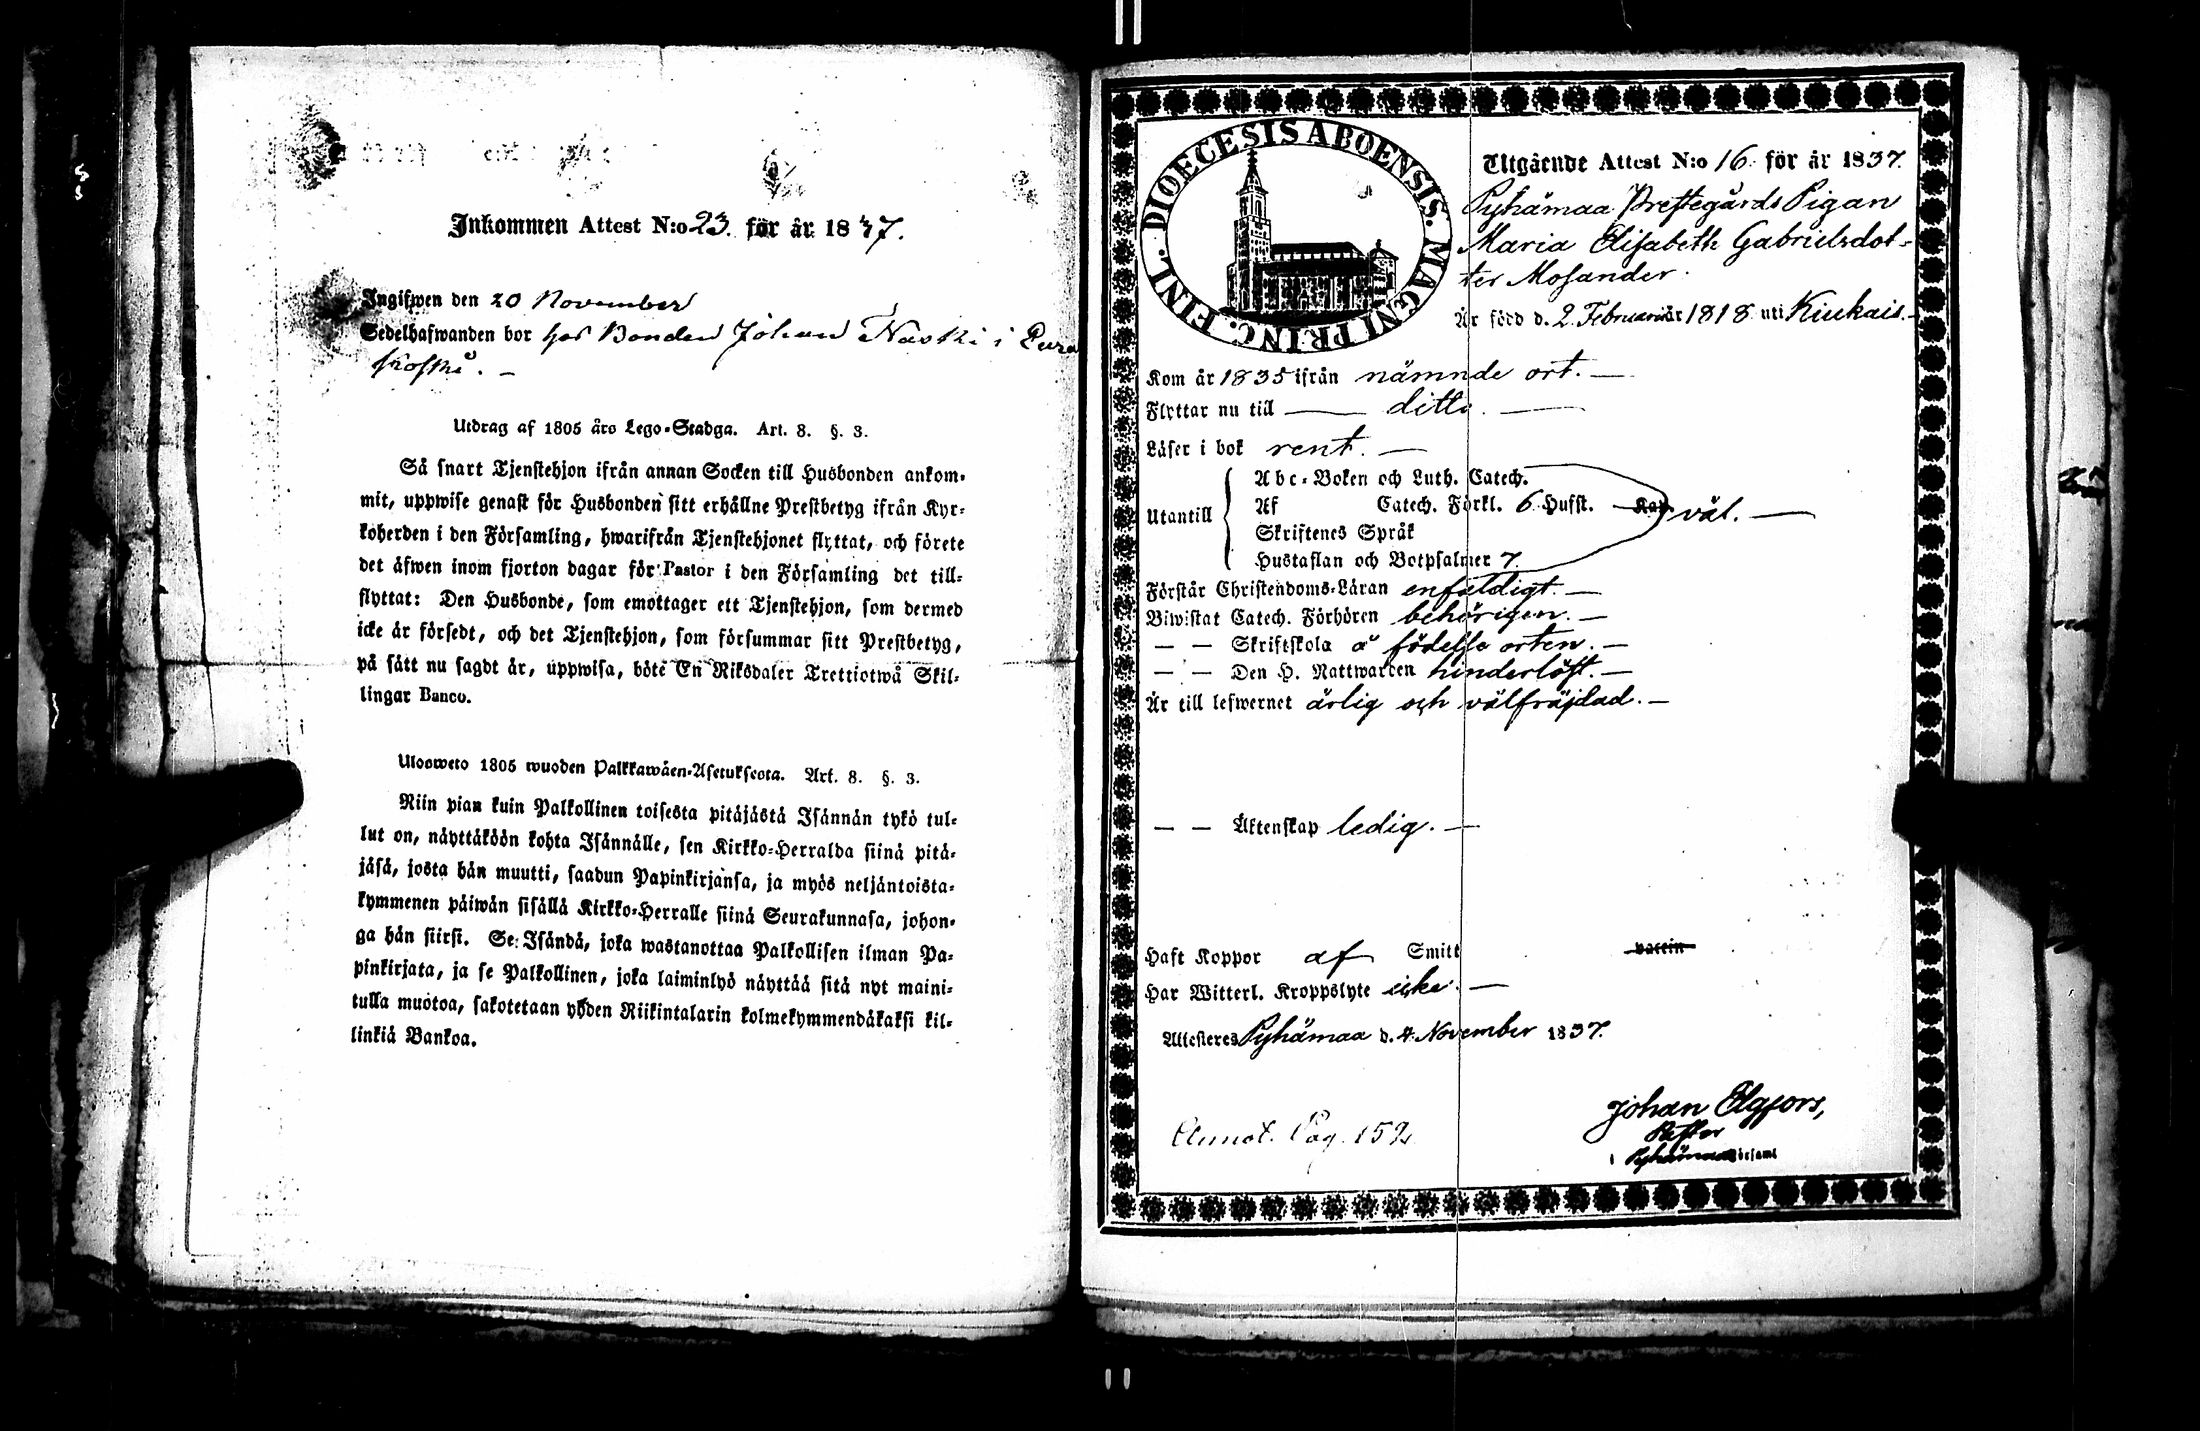 Inkommen Attest N:o 23. för år 1837.
Ingifwen den 20 November
Sedelhafwanden bor hos Bonden Johan Näski i
Utdrag af 1805 års Lego-Stadga. Art. 8. §. 3.
Så snart Tjenstehjon ifrån annan Socken till Husbonden ankom-
mit, uppwise genast för Husbonden sitt erhållne Prestbetyg ifrån Kyr-
koherden i den Församling, hwarifrån Tjenstehjonet flyttat, och förete
det äfwen inom fjorton dagar för Pastor i den Församling det till-
flyttat: Den Husbonde, som emottager ett Tjenstehjon, som dermed
icke är försedt, och det Tjenstehjon, som försummar sitt Prestbetyg,
på sätt nu sagdt är, uppwisa, böte En Riksdaler Trettiotwå Skil-
lingar Banco.
Ulosweto 1805 wuoden Palkkawäen-Asetuksesta. Art. 8. §. 3.
Niin pian kuin Palkollinen toisesta pitäjästä Isännän tykö tul-
lut on, näyttäköön kohta Isännälle, sen Kirkko-Herralda siinä pitä-
jäsä, josta hän muutti, saadun Papinkirjansa, ja myös neljäntoista-
kymmenen päiwän sisällä Kirkko-Herralle siinä Seurakunnasa, johon-
ga hän siirsi. Se Isändä, joka wastanottaa Palkollisen ilman Pa-
pinkirjata, ja se Palkollinen, joka laiminlyö näyttää sitä nyt maini-
tulla muotoa, sakotetaan yhden Riikintalarin kolmekymmendäkaksi kil-
linkiä Bankoa.
DIOECESIS ABOENSIS. MAGNI PRINC. FINL.
Utgående Attest N:o 16. för år 1837.
Pyhämaa Prestegårds Pigan
Maria Elisabeth Gabrielsdot-
ter Mosander.
Är född d. 2 Februarii år 1818 uti Kiukais. -
Kom år 1835 ifrån nämnde ort. —
Flyttar nu till — ditto. —
Läser i bok rent. —
Utantill
Abc-Boken och Luth. Catech.
Af Catech. Förkl. 6 Hufst. — Kap. väl. —
Skriftenes Språk
Hustaflan och Botpsalmer 7.
Förstår Christendoms-Läran enfaldigt. —
Biwistat Catech. Förhören behörigen. —
— — Skriftskola å födelse orten. —
— — Den H. Nattwarden hinderlöst. —
Är till lefwernet ärlig och välfräjdad. —
— — Äktenskap ledig. —
Haft Koppor af Smitt vaccin
Har Witterl. Kroppslyte icke. —
Attesteres Pyhämaa d. 4 November 1837.
Johan Elgfors,
Pastor
i Pyhämaa Församl
Annot. Pag. 152